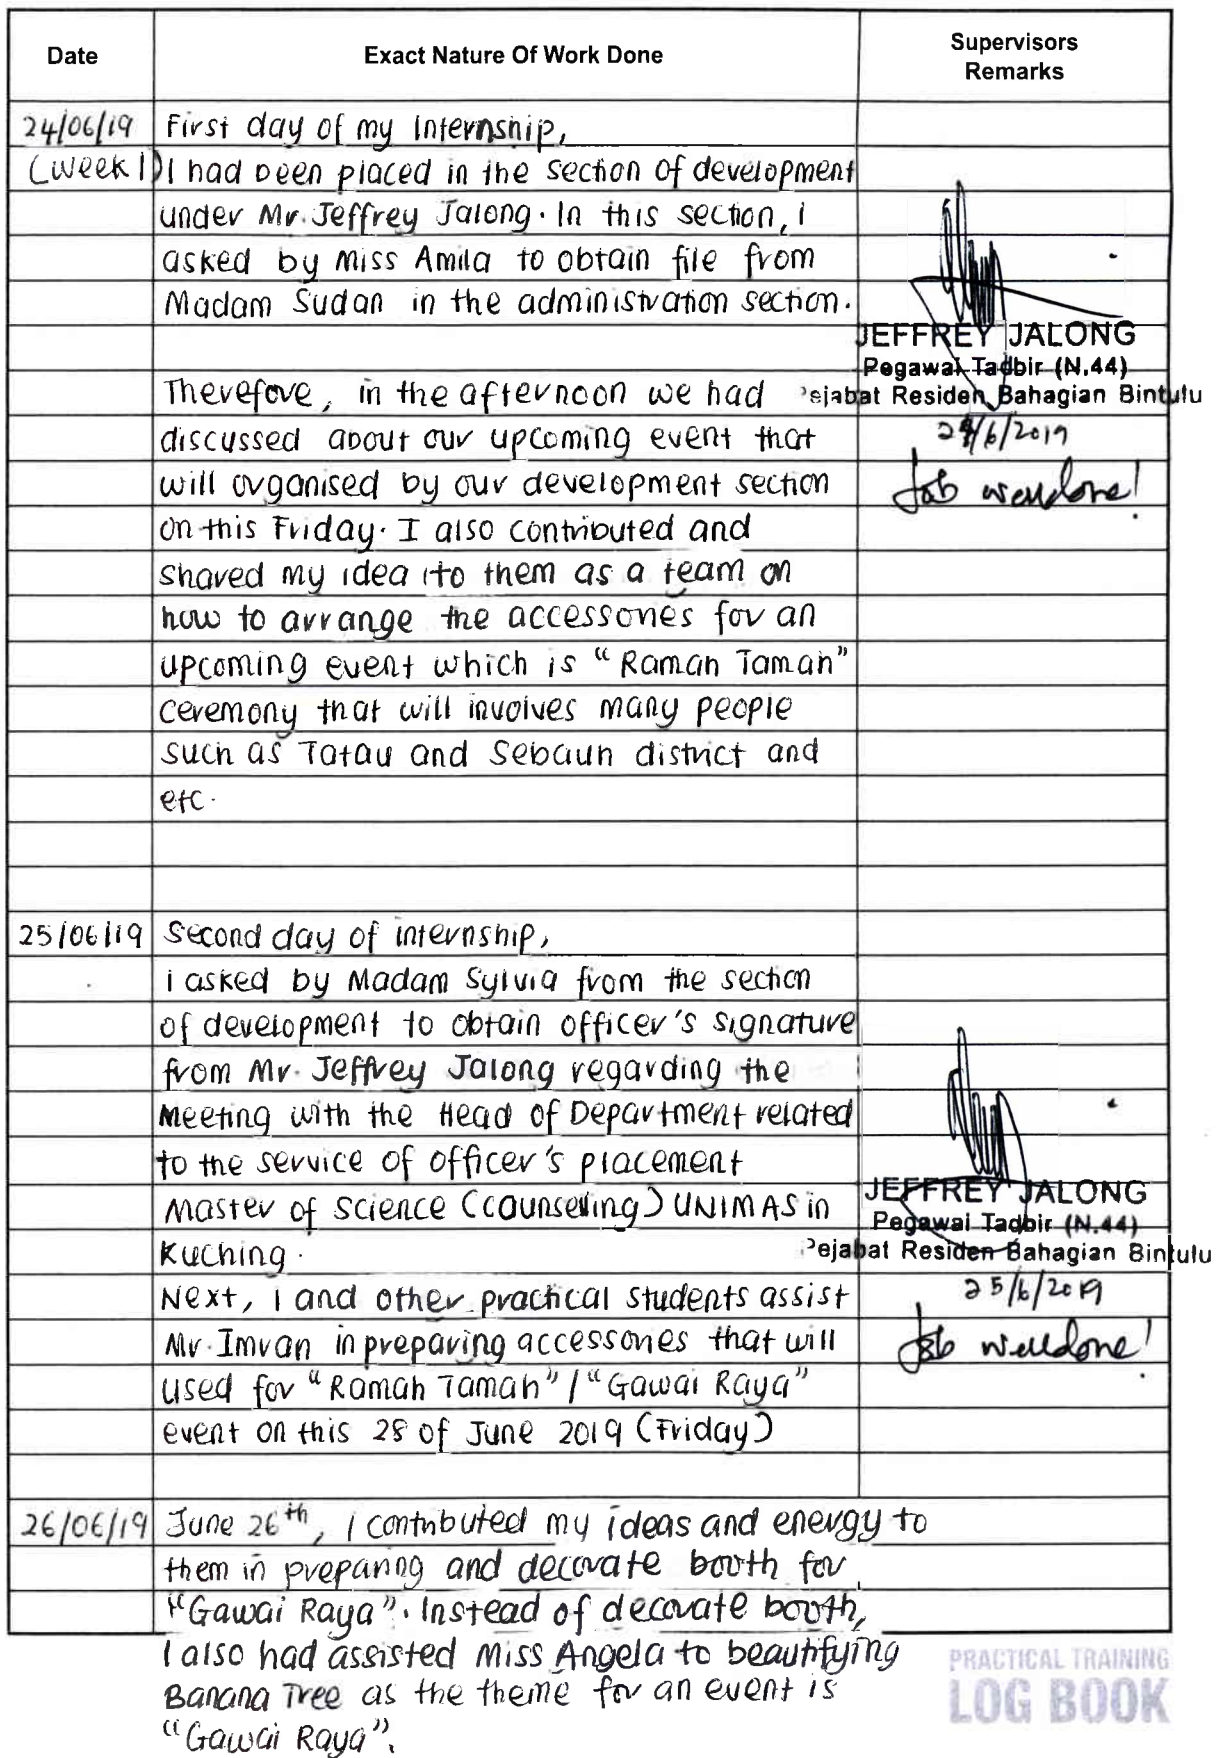 Date
Exact Nature Of Work Done
Supervisors
Remarks
24/06/19
First day of my Internship,
(Week 1)
I had been placed in the section of development
under Mr. Jeffrey Jalong. In this section, i
asked by Miss Amila to obtain file from
Madam Sudan in the administration section.
JEFFREY JALONG
Pegawai Tadbir (N.44)
Pejabat Residen Bahagian Bintulu
24/6/2019
Job welldone!
Therefore, in the afternoon we had
discussed about our upcoming event that
will organised by our development section
on this Friday. I also contributed and
shared my idea to them as a team on
how to arrange the accessories for an
upcoming event which is "Ramah Tamah"
ceremony that will involves many people
such as Tatau and Sebauh district and
etc.
25/06/19
Second day of internship,
i asked by Madam Sylvia from the section
of development to obtain officer's signature
from Mr. Jeffrey Jalong regarding the
Meeting with the Head of Department related
to the service of officer's placement
Master of Science (Counseling) UNIMAS in
Kuching.
Next, i and other practical students assist
Mr. Imran in preparing accessories that will
used for "Ramah Tamah" / "Gawai Raya"
event on this 28 of June 2019 (Friday)
JEFFREY JALONG
Pegawai Tadbir (N.44)
Pejabat Residen Bahagian Bintulu
25/6/2019
Job welldone!
26/06/19
June 26th, I contributed my ideas and energy to
them in preparing and decorate booth for
"Gawai Raya". Instead of decorate booth,
I also had assisted Miss Angela to beautifying
Banana Tree as the theme for an event is
"Gawai Raya".
PRACTICAL TRAINING
LOG BOOK